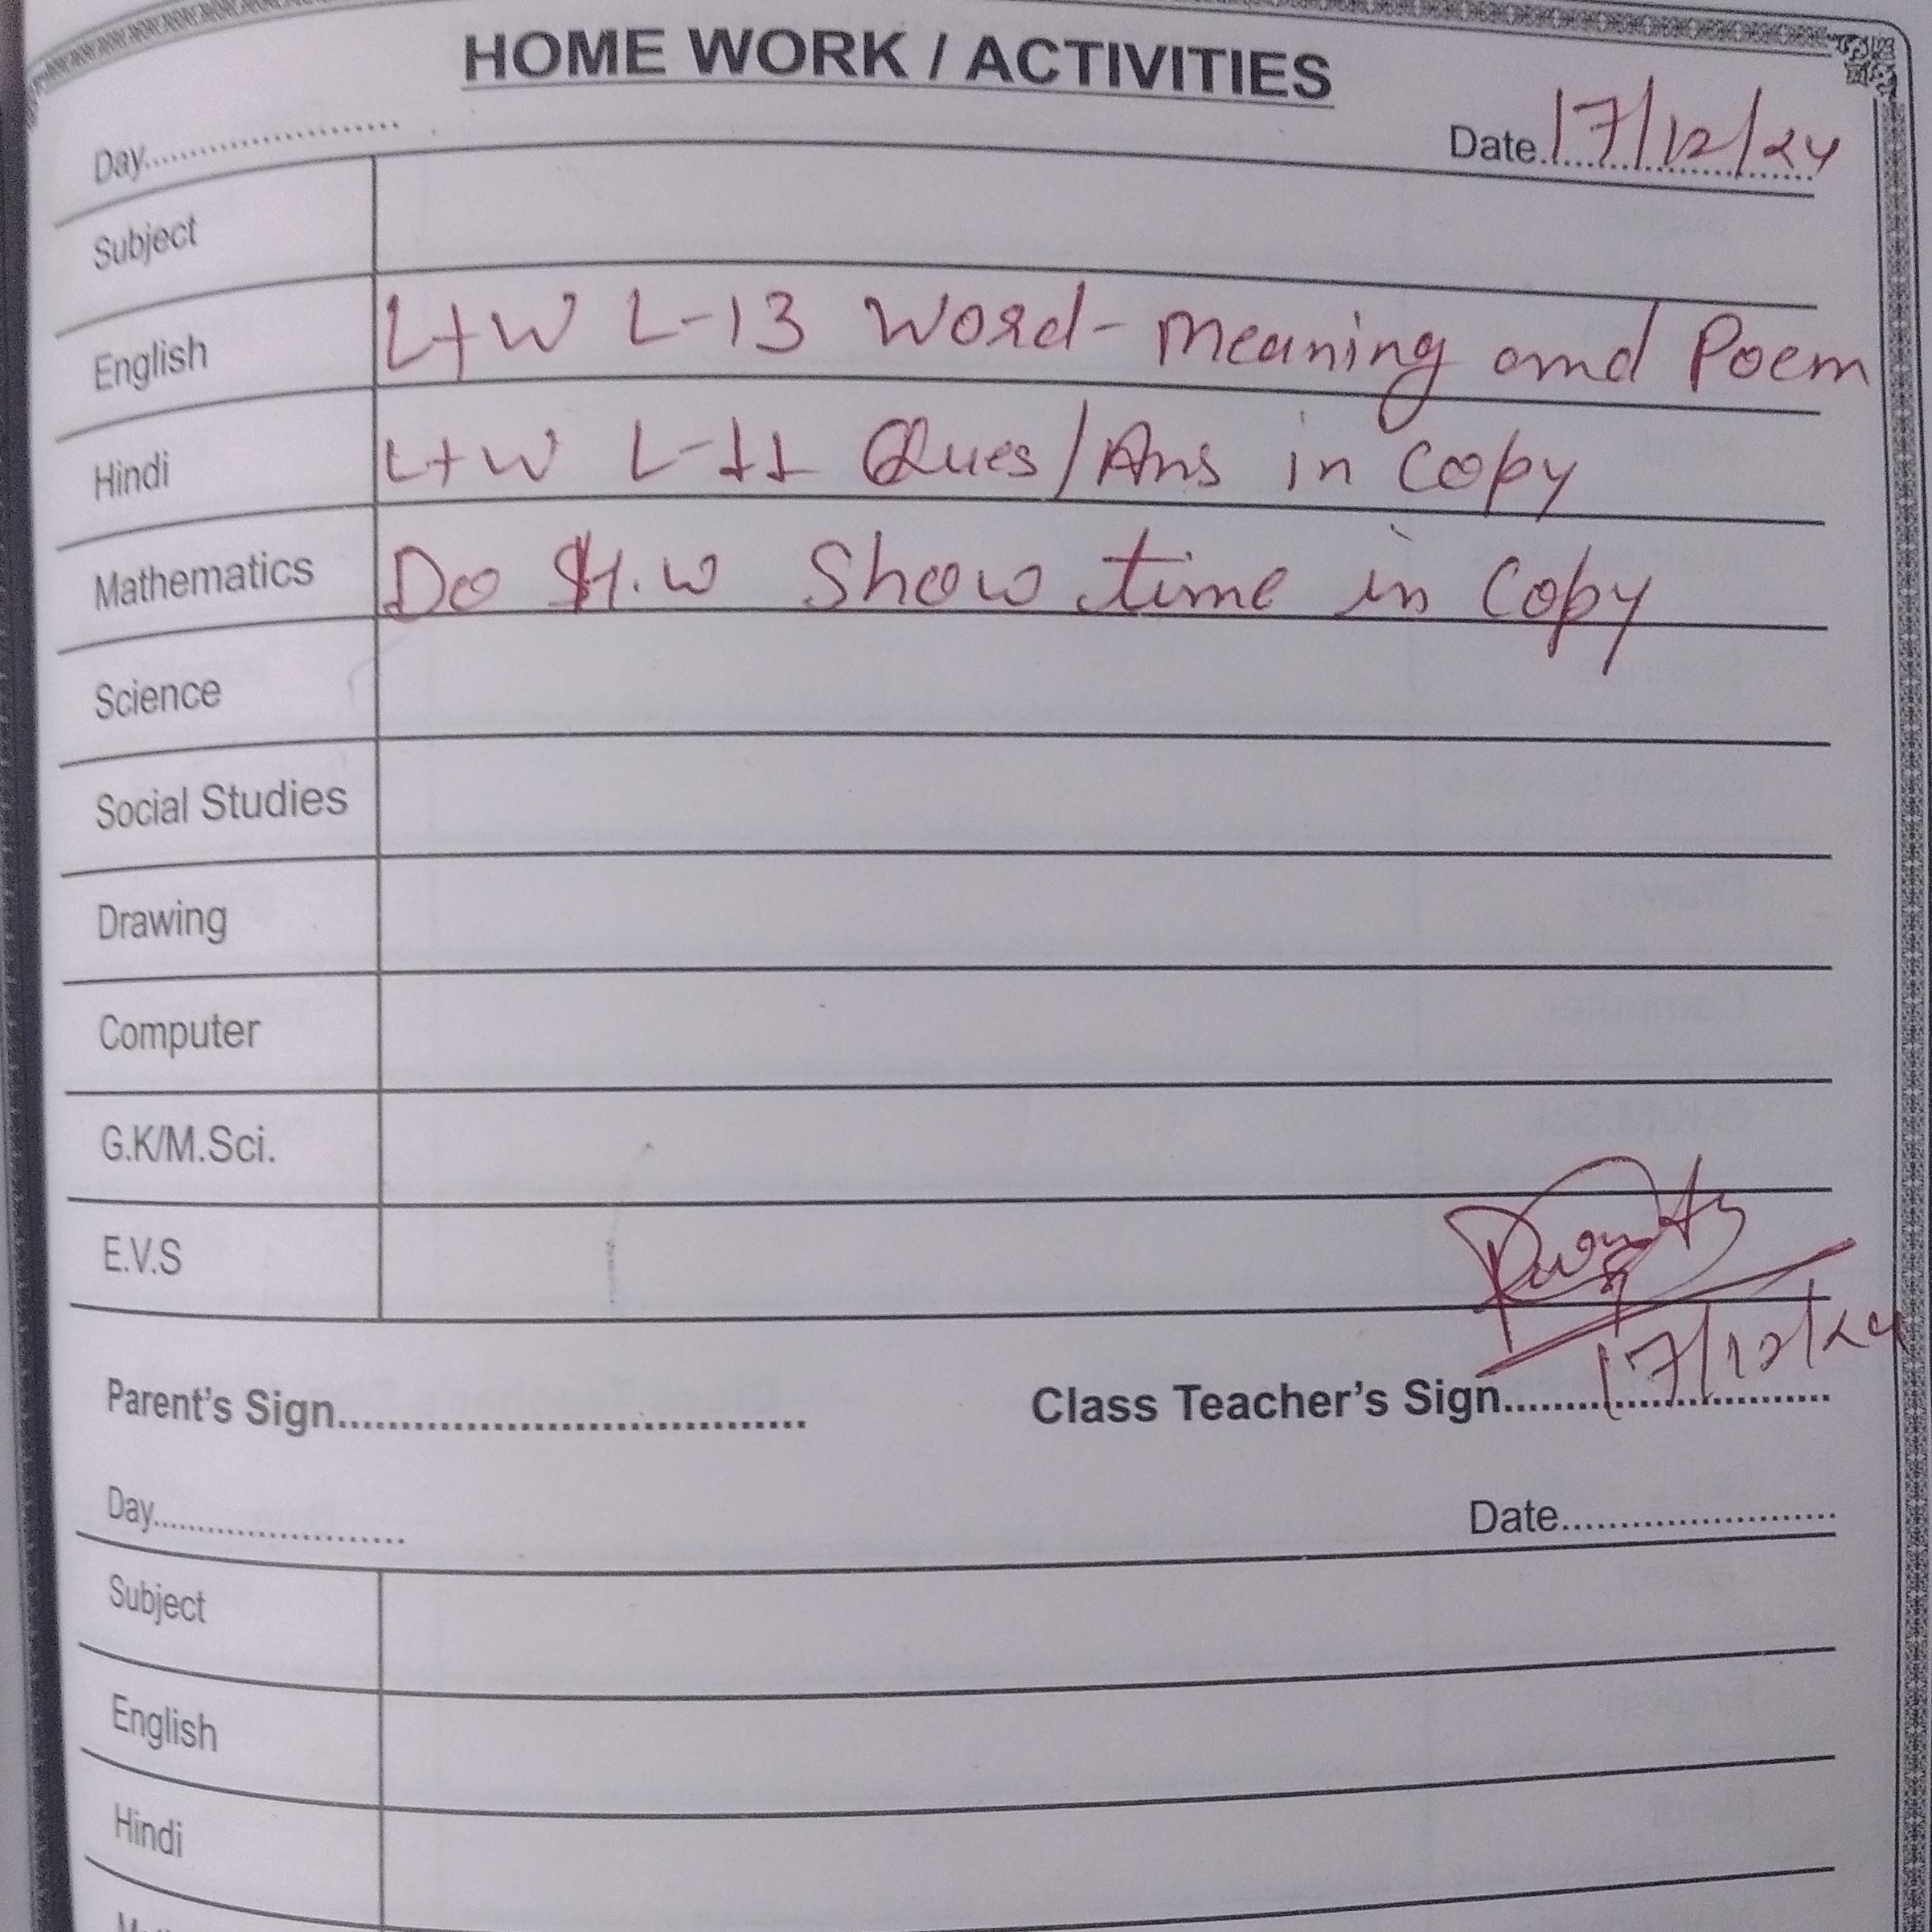 HOME WORK / ACTIVITIES
Day........................ Date 17/12/24
Subject
English L+W L-13 Word-meaning and Poem
Hindi L+W L-11 Ques/Ans in copy
Mathematics Do H.W Show time in Copy
Science
Social Studies
Drawing
Computer
G.K/M.Sci.
E.V.S
17/12/24
Parent's Sign........................................ Class Teacher's Sign............................
Day........................ Date........................
Subject
English
Hindi